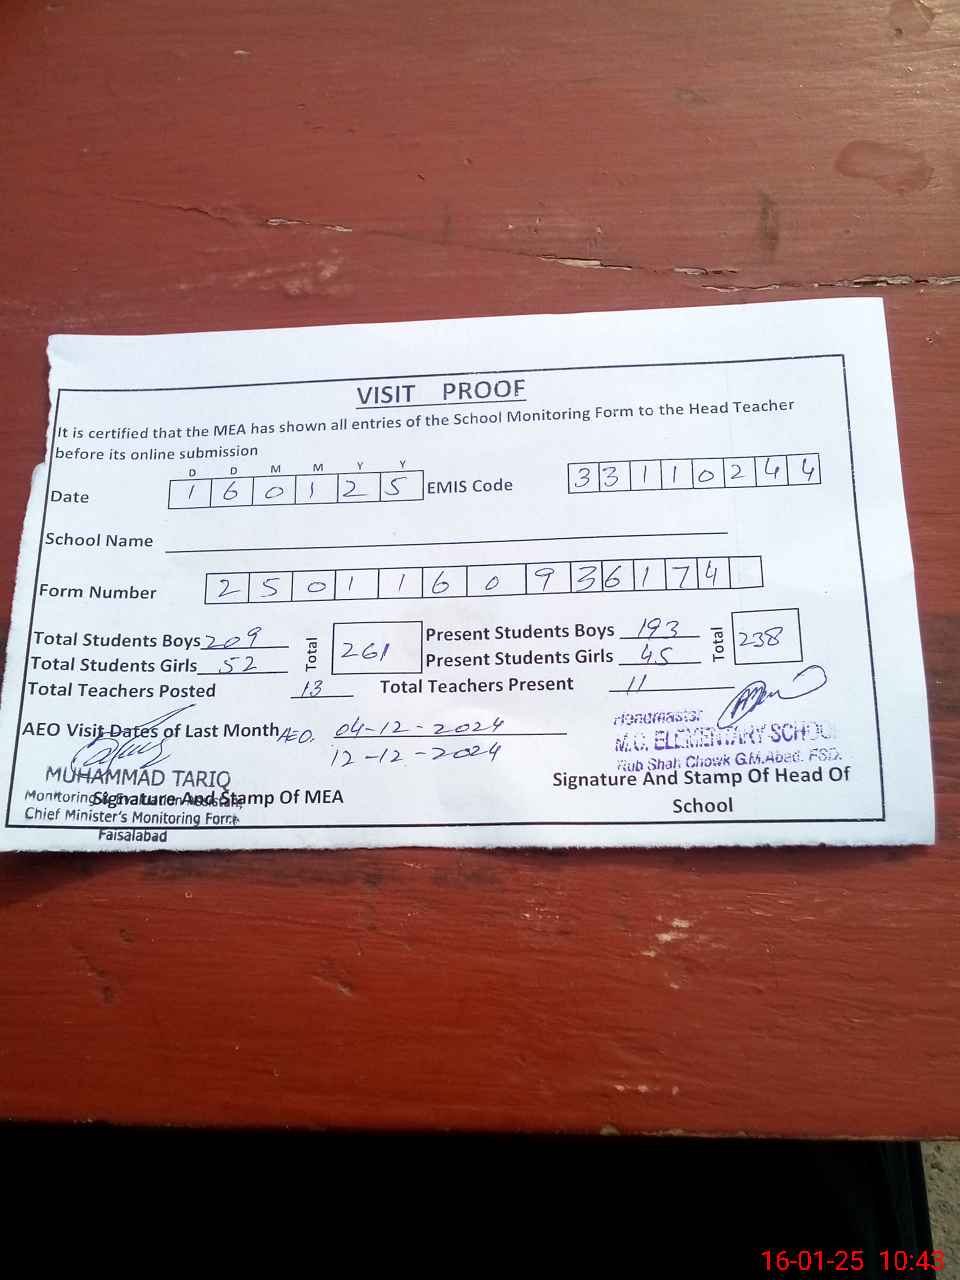 VISIT PROOF
It is certified that the MEA has shown all entries of the School Monitoring Form to the Head Teacher
before its online submission
D D M M Y Y
Date 1 6 0 1 2 5 EMIS Code 3 3 1 1 0 2 4 4
School Name
Form Number 2 5 0 1 1 6 0 9 3 6 1 7 4
Total Students Boys 209 Total 261 Present Students Boys 193 Total 238
Total Students Girls 52 Present Students Girls 45
Total Teachers Posted 13 Total Teachers Present 11
AEO Visit Dates of Last Month AEO. 04-12-2024
12-12-2024
Headmaster
M.C. ELEMENTARY SCHOOL
Shah Chowk G.M.Abad. FSD.
MUHAMMAD TARIQ
Signature And Stamp Of Head Of
School
Monitoring & Evaluation Assistant,
Signature And Stamp Of MEA
Chief Minister's Monitoring Force
Faisalabad
16-01-25 10:43